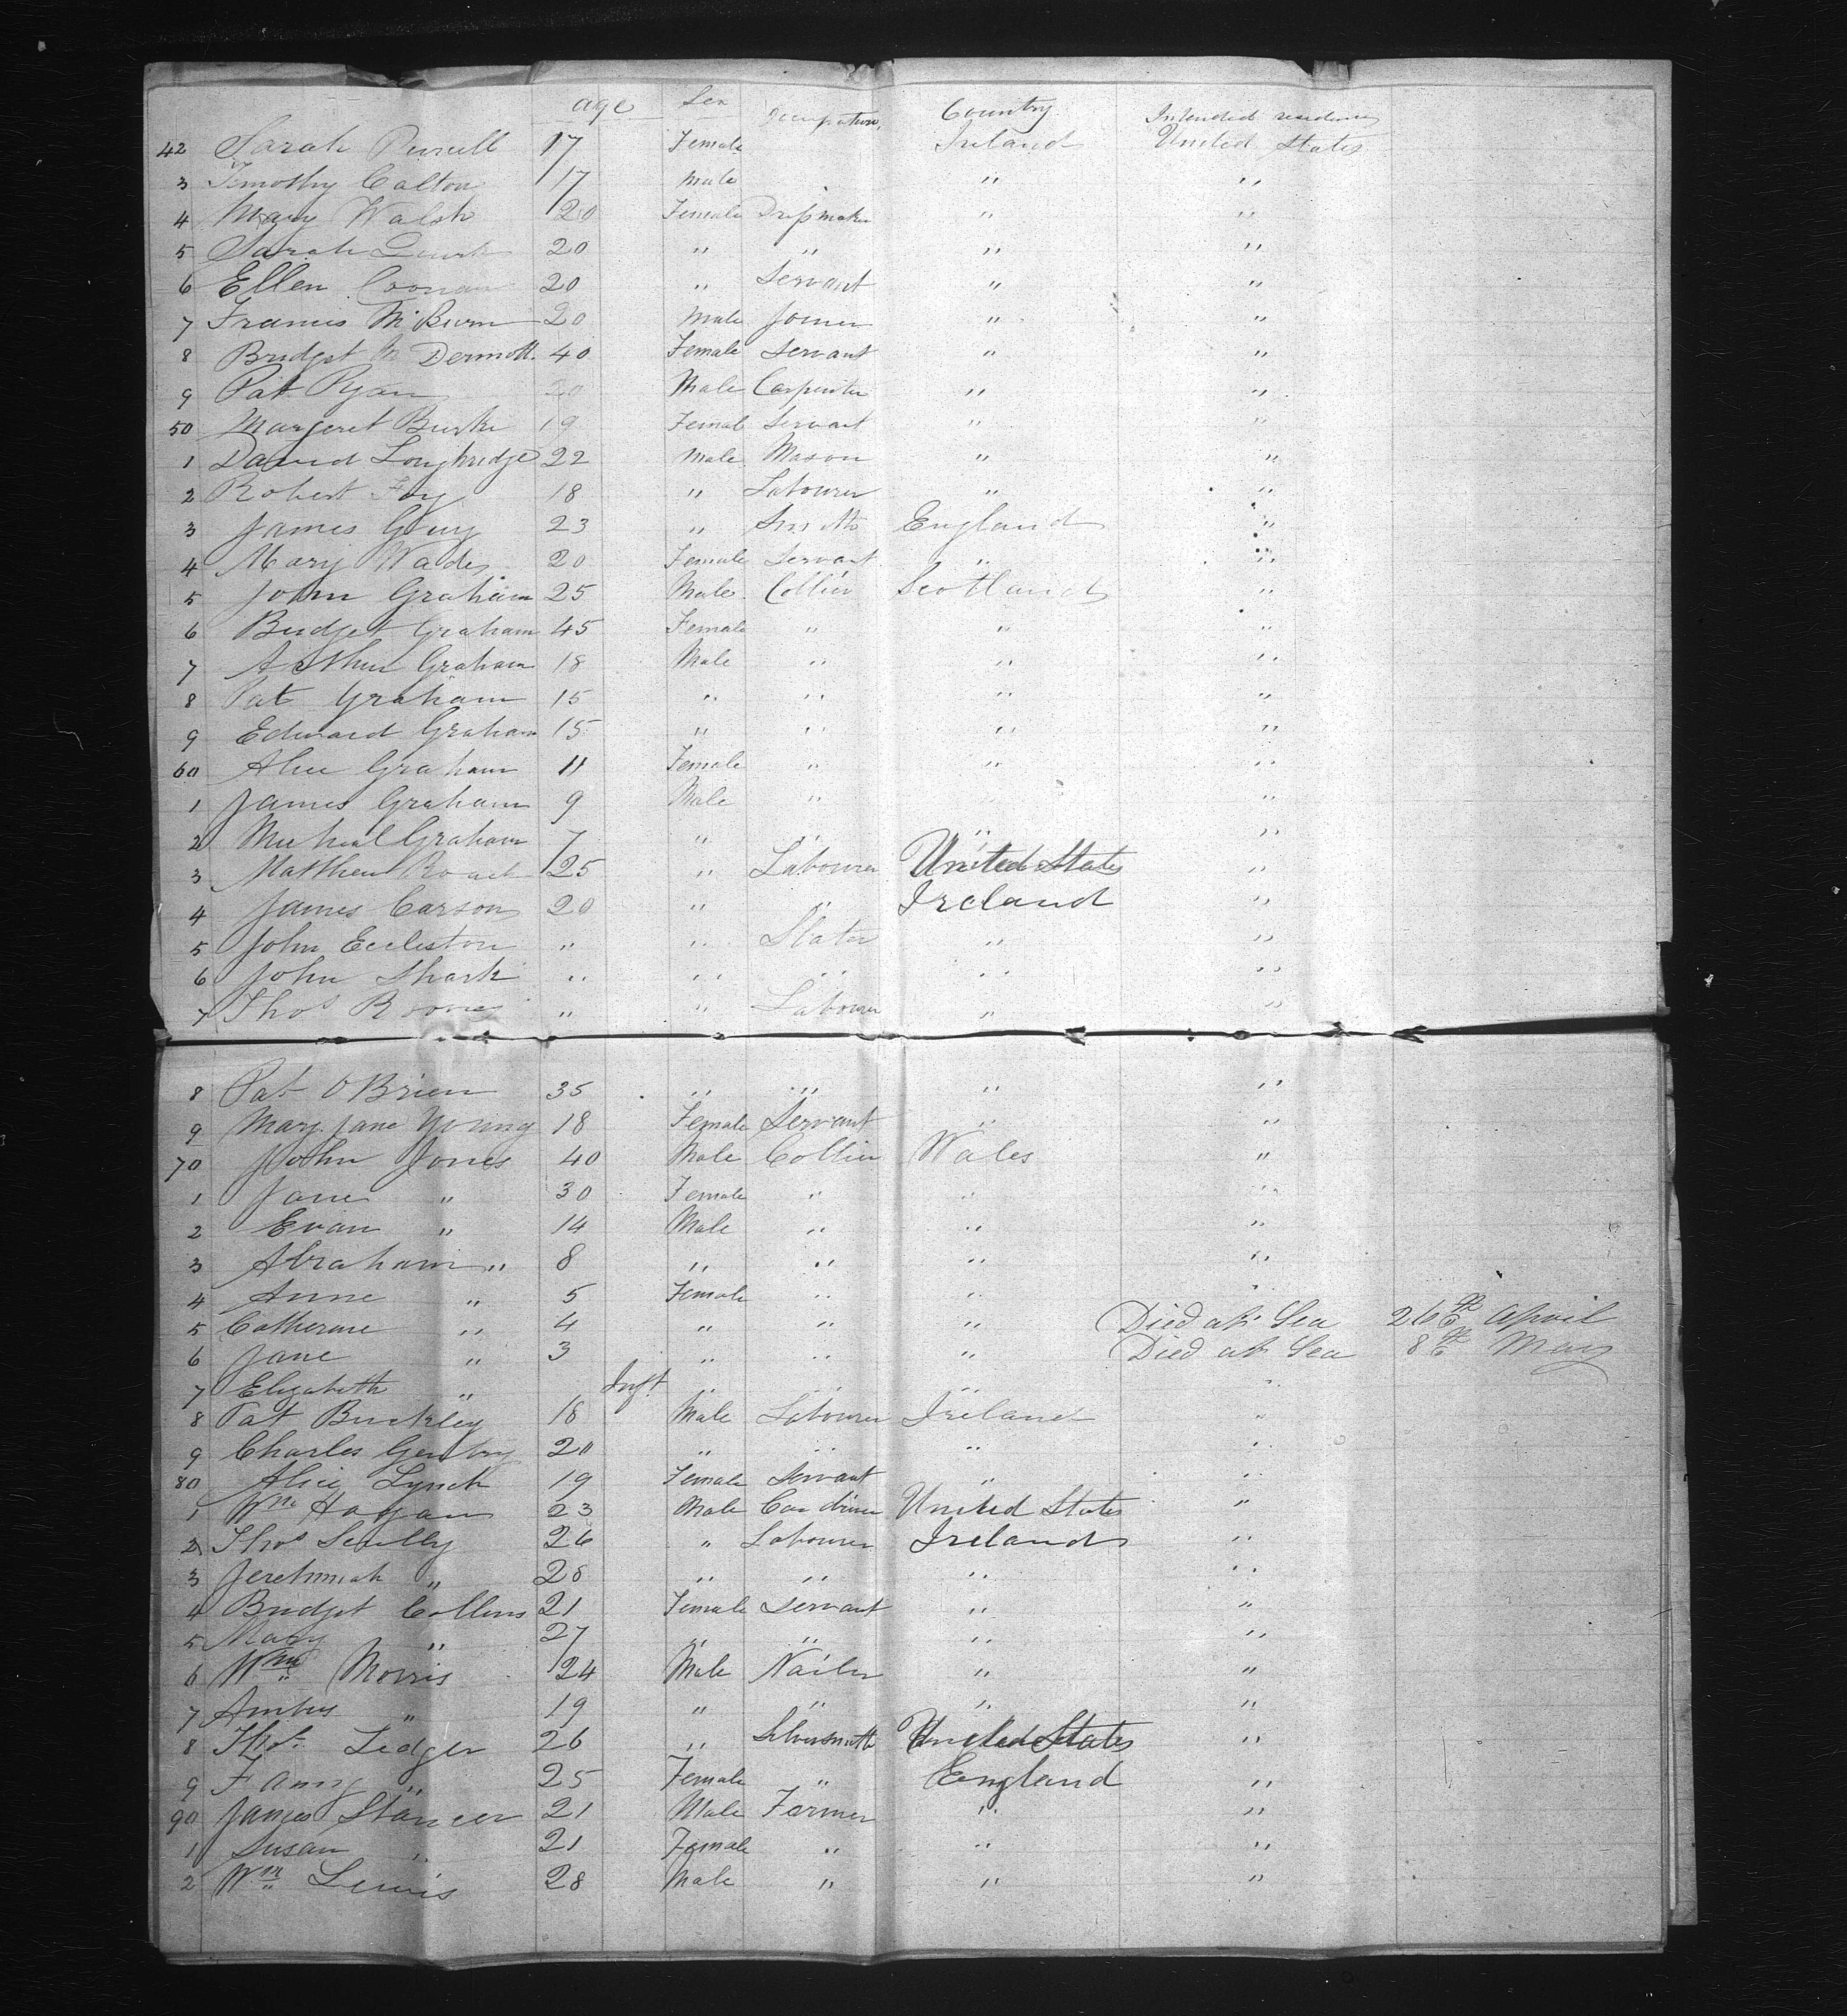 age Sex Occupation, Country Intended residence
42 Sarah Purcell 17 Female Ireland United States
3 Timothy Calton 17 Male " "
4 Mary Walsh 20 Female Dressmaker " "
5 Sarah 20 " " " "
6 Ellen Coonan 20 " Servant " "
7 Francis 20 Male Joiner " "
8 Bridget Mc Dermott. 40 Female Servant " "
9 Pat Ryan 20 Male Carpenter " "
50 Margeret Burke 19 Female Servant " "
1 David Loughridge 22 Male Mason " "
2 Robert Foy 18 " Labourer " "
3 James Guy 23 " Smith England "
4 Mary Wade 20 Female Servant " "
5 John Graham 25 Male Collier Scotland "
6 Bridget Graham 45 Female " " "
7 Arthur Graham 18 Male " " "
8 Pat Graham 15 " " " "
9 Edward Graham 15 " " " "
60 Alice Graham 11 Female " " "
1 James Graham 9 Male " "
2 Micheal Graham 7 " " " "
3 Matthew Roach 25 " Labourer United States "
4 James Carson 20 " " Ireland "
5 John Eccleston " " Slater " "
6 John Shark " " " " "
7 Thos " " Labourer " "
8 Pat O Brien 35 " " " "
9 Mary Jane Young 18 Female Servant " "
70 John Jones 40 Male Collier Wales "
1 Jane " 30 Female " " "
2 Evan " 14 Male " " "
3 Abraham " 8 " " " "
4 Anne " 5 Female " " "
5 Catherine " 4 " " " Died at Sea 26th April
6 Jane " 3 " " " Died at Sea 8th May
7 Elizabeth " Inft " " " "
8 Pat Buckley 18 Male Labourer Ireland "
9 Charles Gentry 20 " " " "
80 Alice Lynch 19 Female Servant " "
1 Wm Hagan 23 Male Car driver United States "
2 Thos Scully 26 " Labourer Ireland "
3 Jerehmiah " 28 " " " "
4 Bridget Collins 21 Female Servant " "
5 Mary " 27 " " " "
6 Wm Morris 24 Male Nailer " "
7 " 19 " " " "
8 Thos Ledger 26 " Silversmith United States "
9 Fanny " 25 Female " England "
90 James Stancer 21 Male Farmer " "
1 Susan " 21 Female " " "
2 Wm Lewis 28 Male " " "